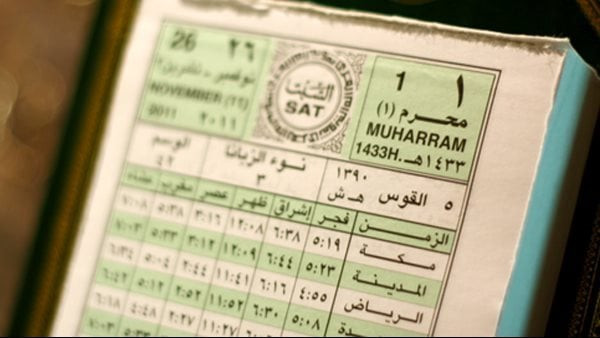 1 ١
محرم (١)
MUHARRAM
1433H. ١٤٣٣هـ
السبت
SAT
26 ٢٦
نوفمبر ـ تشرين٢
NOVEMBER (11)
2011 ٢٠١١
٥ القوس ١٣٩٠ هـ ش
نوء الزبانا
٣
الوسم
٤٢
الزمن فجر إشراق ظهر عصر مغرب عشاء
مكة ٥:١٩ ٦:٣٨ ١٢:٠٨ ٣:١٦ ٥:٣٨ ٧:٠٨
المدينة ٥:٢٣ ٦:٤٤ ١٢:٠٩ ٣:١٢ ٥:٣٣ ٧:٠٣
الرياض ٤:٥٥ ٦:١٦ ١١:٤١ ٢:٤٤ ٥:٠٤ ٦:٣٤
٥:٠٨ ٦:٣٠ ١١:٥٢ ٢:٥٢ ٥:١٢ ٦:٤٢
١١:٢٧ ٢:٢٧ ٤:٤٨ ٦:١٨
٥:٣٣ ٧:٠٣